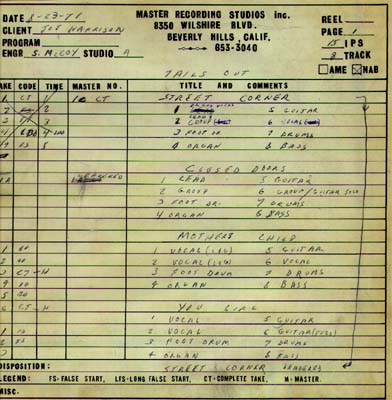 DATE 8-23-71 MASTER RECORDING STUDIOS inc. REEL
CLIENT JOE HARRISON 8350 WILSHIRE BLVD. PAGE 1
PROGRAM BEVERLY HILLS, CALIF. 15 IPS
ENGR S. MCCOY STUDIO A 653-3040 8 TRACK
AME NAB
TAILS OUT
TAKE CODE TIME MASTER NO. TITLE AND COMMENTS
1 CT 1 STREET CORNER
1 5 GUITAR
2 GROUP 6 VOCAL
3 FOOT DR 7 DRUMS
4 ORGAN 8 BASS
CLOSED DOORS
1 LEAD 5 GUITAR
2 GROUP 6 GROUP/GUITAR SOLO
3 FOOT DR. 7 DRUMS
4 ORGAN 8 BASS
MOTHERS CHILD
1 VOCAL (LEG) 5 GUITAR
2 VOCAL (LEG) 6 VOCAL
3 CT-H 3 FOOT DRUM 7 DRUMS
4 ORGAN 8 BASS
CT-H YOU GIRL
1 VOCAL 5 GUITAR
2 VOCAL 6 GUITAR (FUZZ)
3 FOOT DRUM 7 DRUMS
4 ORGAN 8 BASS
DISPOSITION: STREET CORNER
LEGEND: FS-FALSE START, LFS-LONG FALSE START, CT-COMPLETE TAKE, M-MASTER.
MISC.